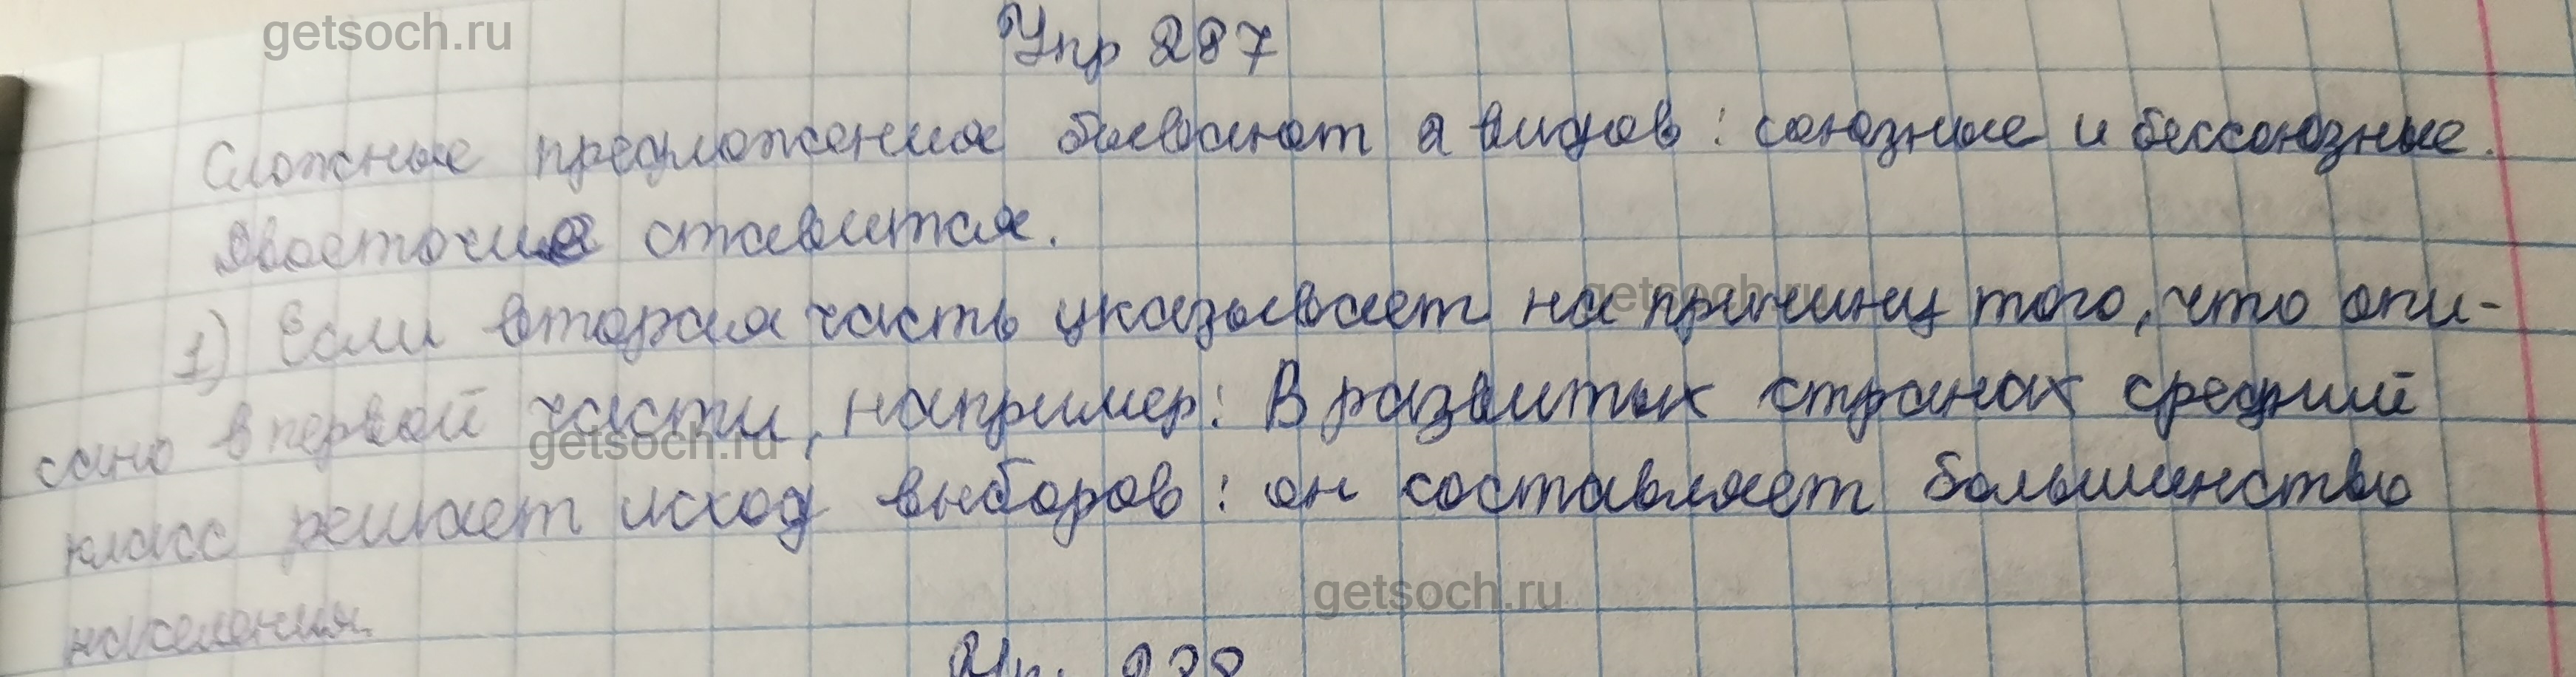 getsoch.ru
Упр 287
Сложные предложения бывают 2 видов: союзные и бессоюзные.
Двоеточие ставится.
getsoch.ru
1) Если вторая часть указывает на причину того, что опи-
сано в первой части, например: В развитых странах средний
getsoch.ru
класс решает исход выборов: он составляет большинство
getsoch.ru
населения.